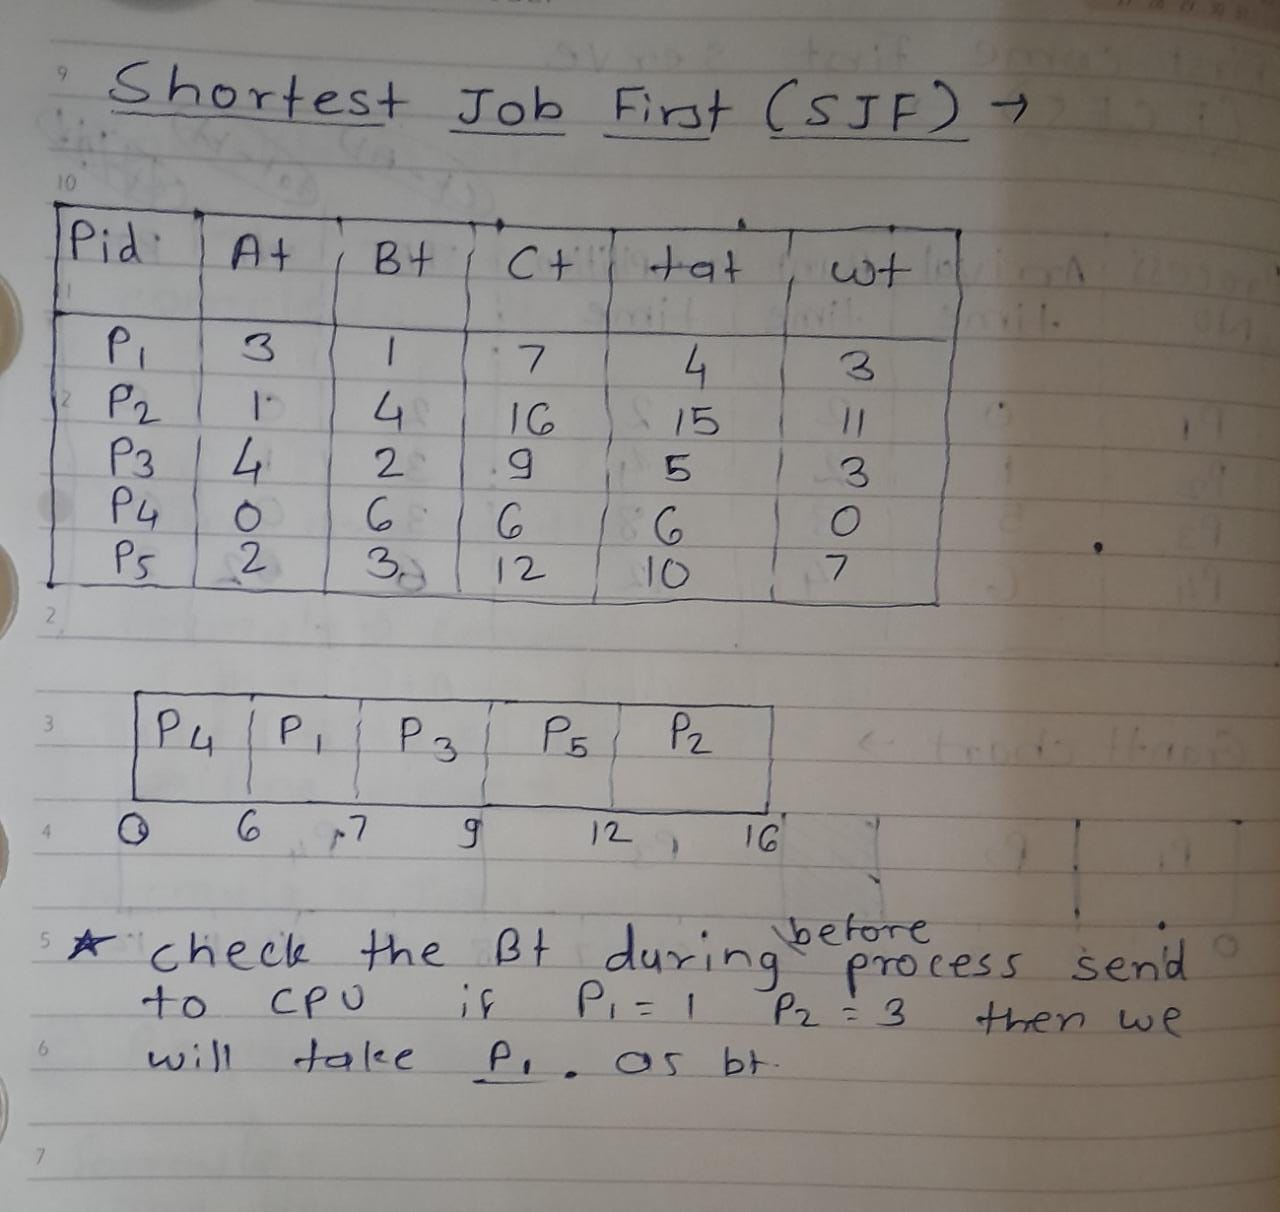 Shortest Job First (SJF) →
Pid At Bt Ct tat wt
P1 3 1 7 4 3
P2 1 4 16 15 11
P3 4 2 9 5 3
P4 0 6 6 6 0
P5 2 3 12 10 7
P4 P1 P3 P5 P2
0 6 7 9 12 16
★ check the Bt during before process send
to CPU if P1 = 1 P2 = 3 then we
will take P1. as bt.